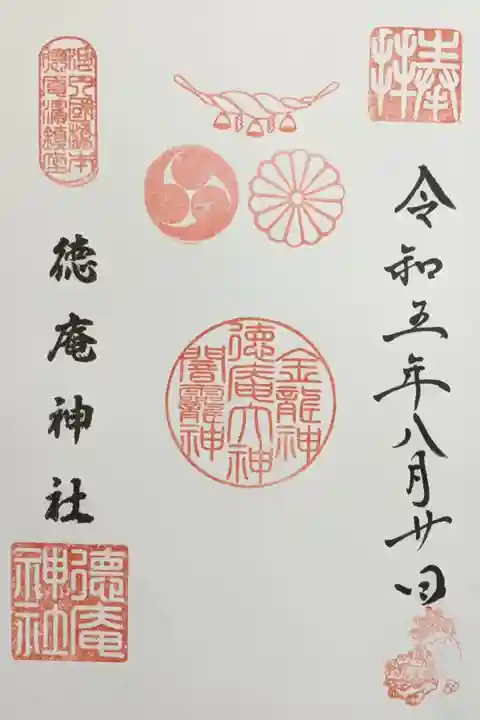 奉拝
令和五年八月廿日
金龍神
徳庵大神
闇龗神
徳庵神社
徳庵神社